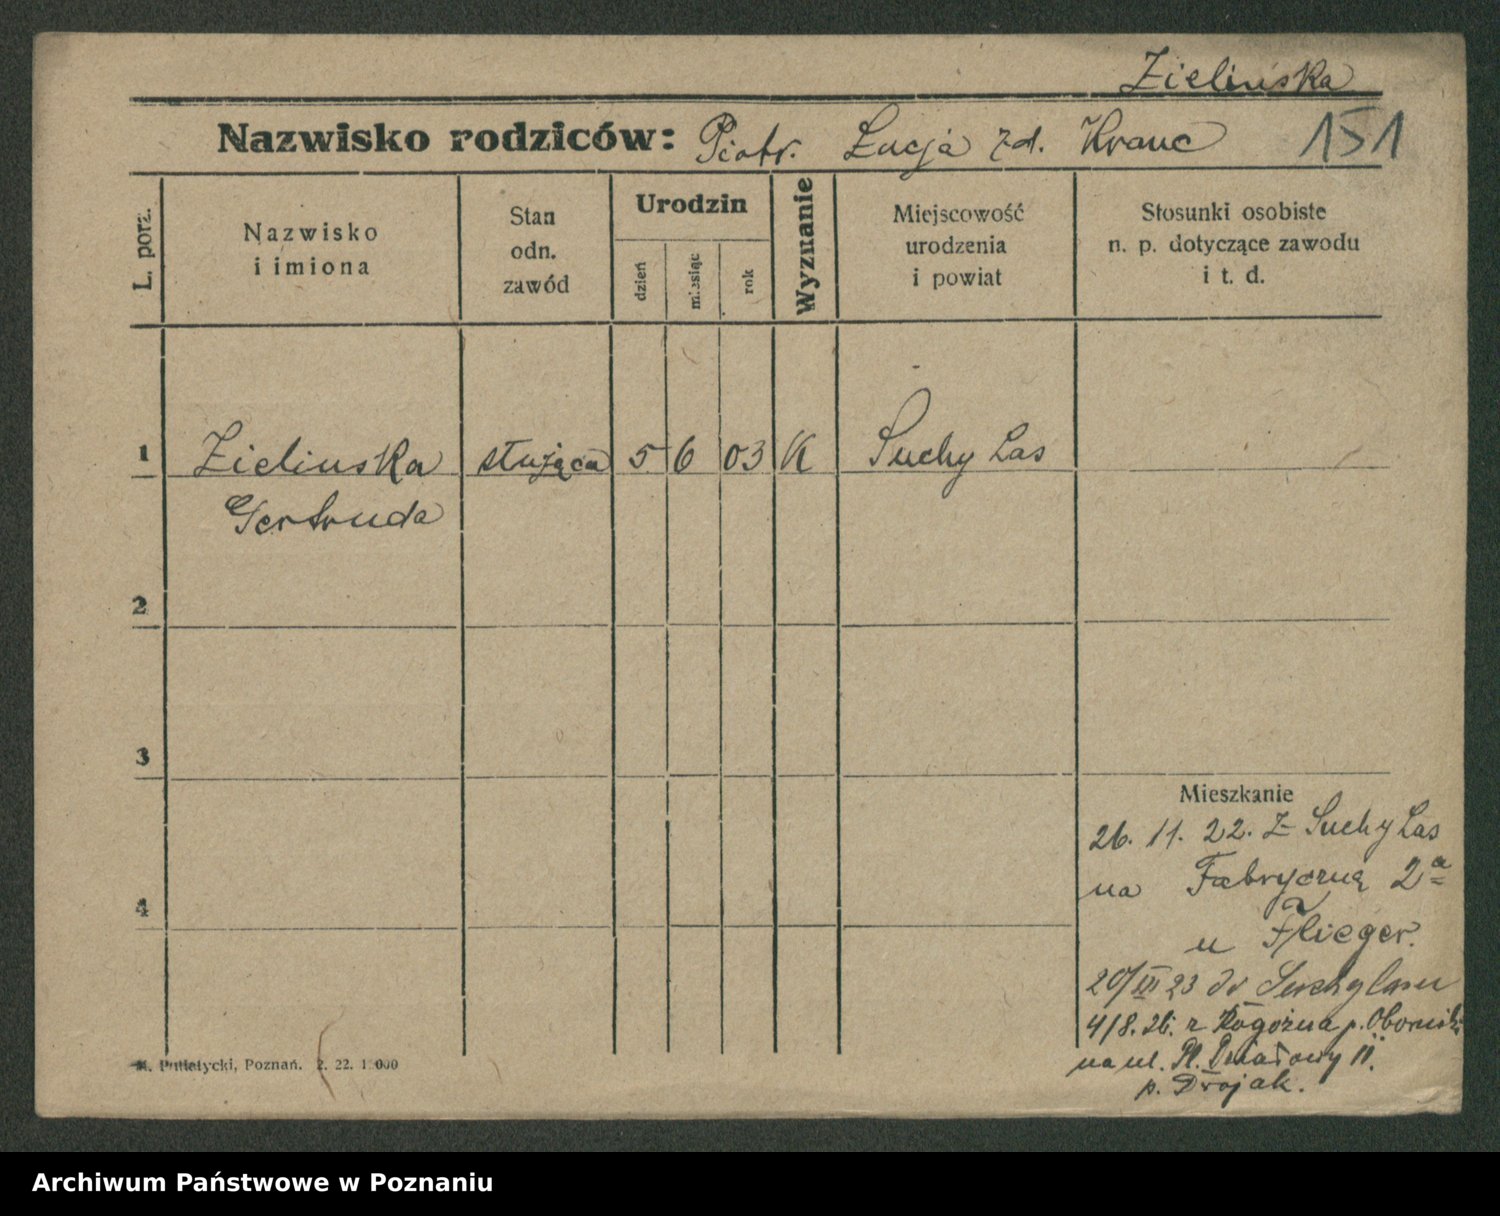 Zielińska
Nazwisko rodziców: Piotr. Łucja zd. Kranc 151
L. porz.
Nazwisko
i imiona
Stan
odn.
zawód
Urodzin
dzień
miesiąc
rok
Wyznanie
Miejscowość
urodzenia
i powiat
Stosunki osobiste
n. p. dotyczące zawodu
i t. d.
1 Zielinska służąca 5 6 03 K Suchy Las
Gertruda
2
3
Mieszkanie
26. 11. 22. z Suchy Las
na Fabryczną 2a
u Flieger.
4
20/III 23 do Suchylasu
4/8. 26. z Rogoźna p. Oborniki
na ul. Pl. Działowy 11.
p. Drojak.
Putiatycki, Poznań. 2. 22. 1 000
Archiwum Państwowe w Poznaniu